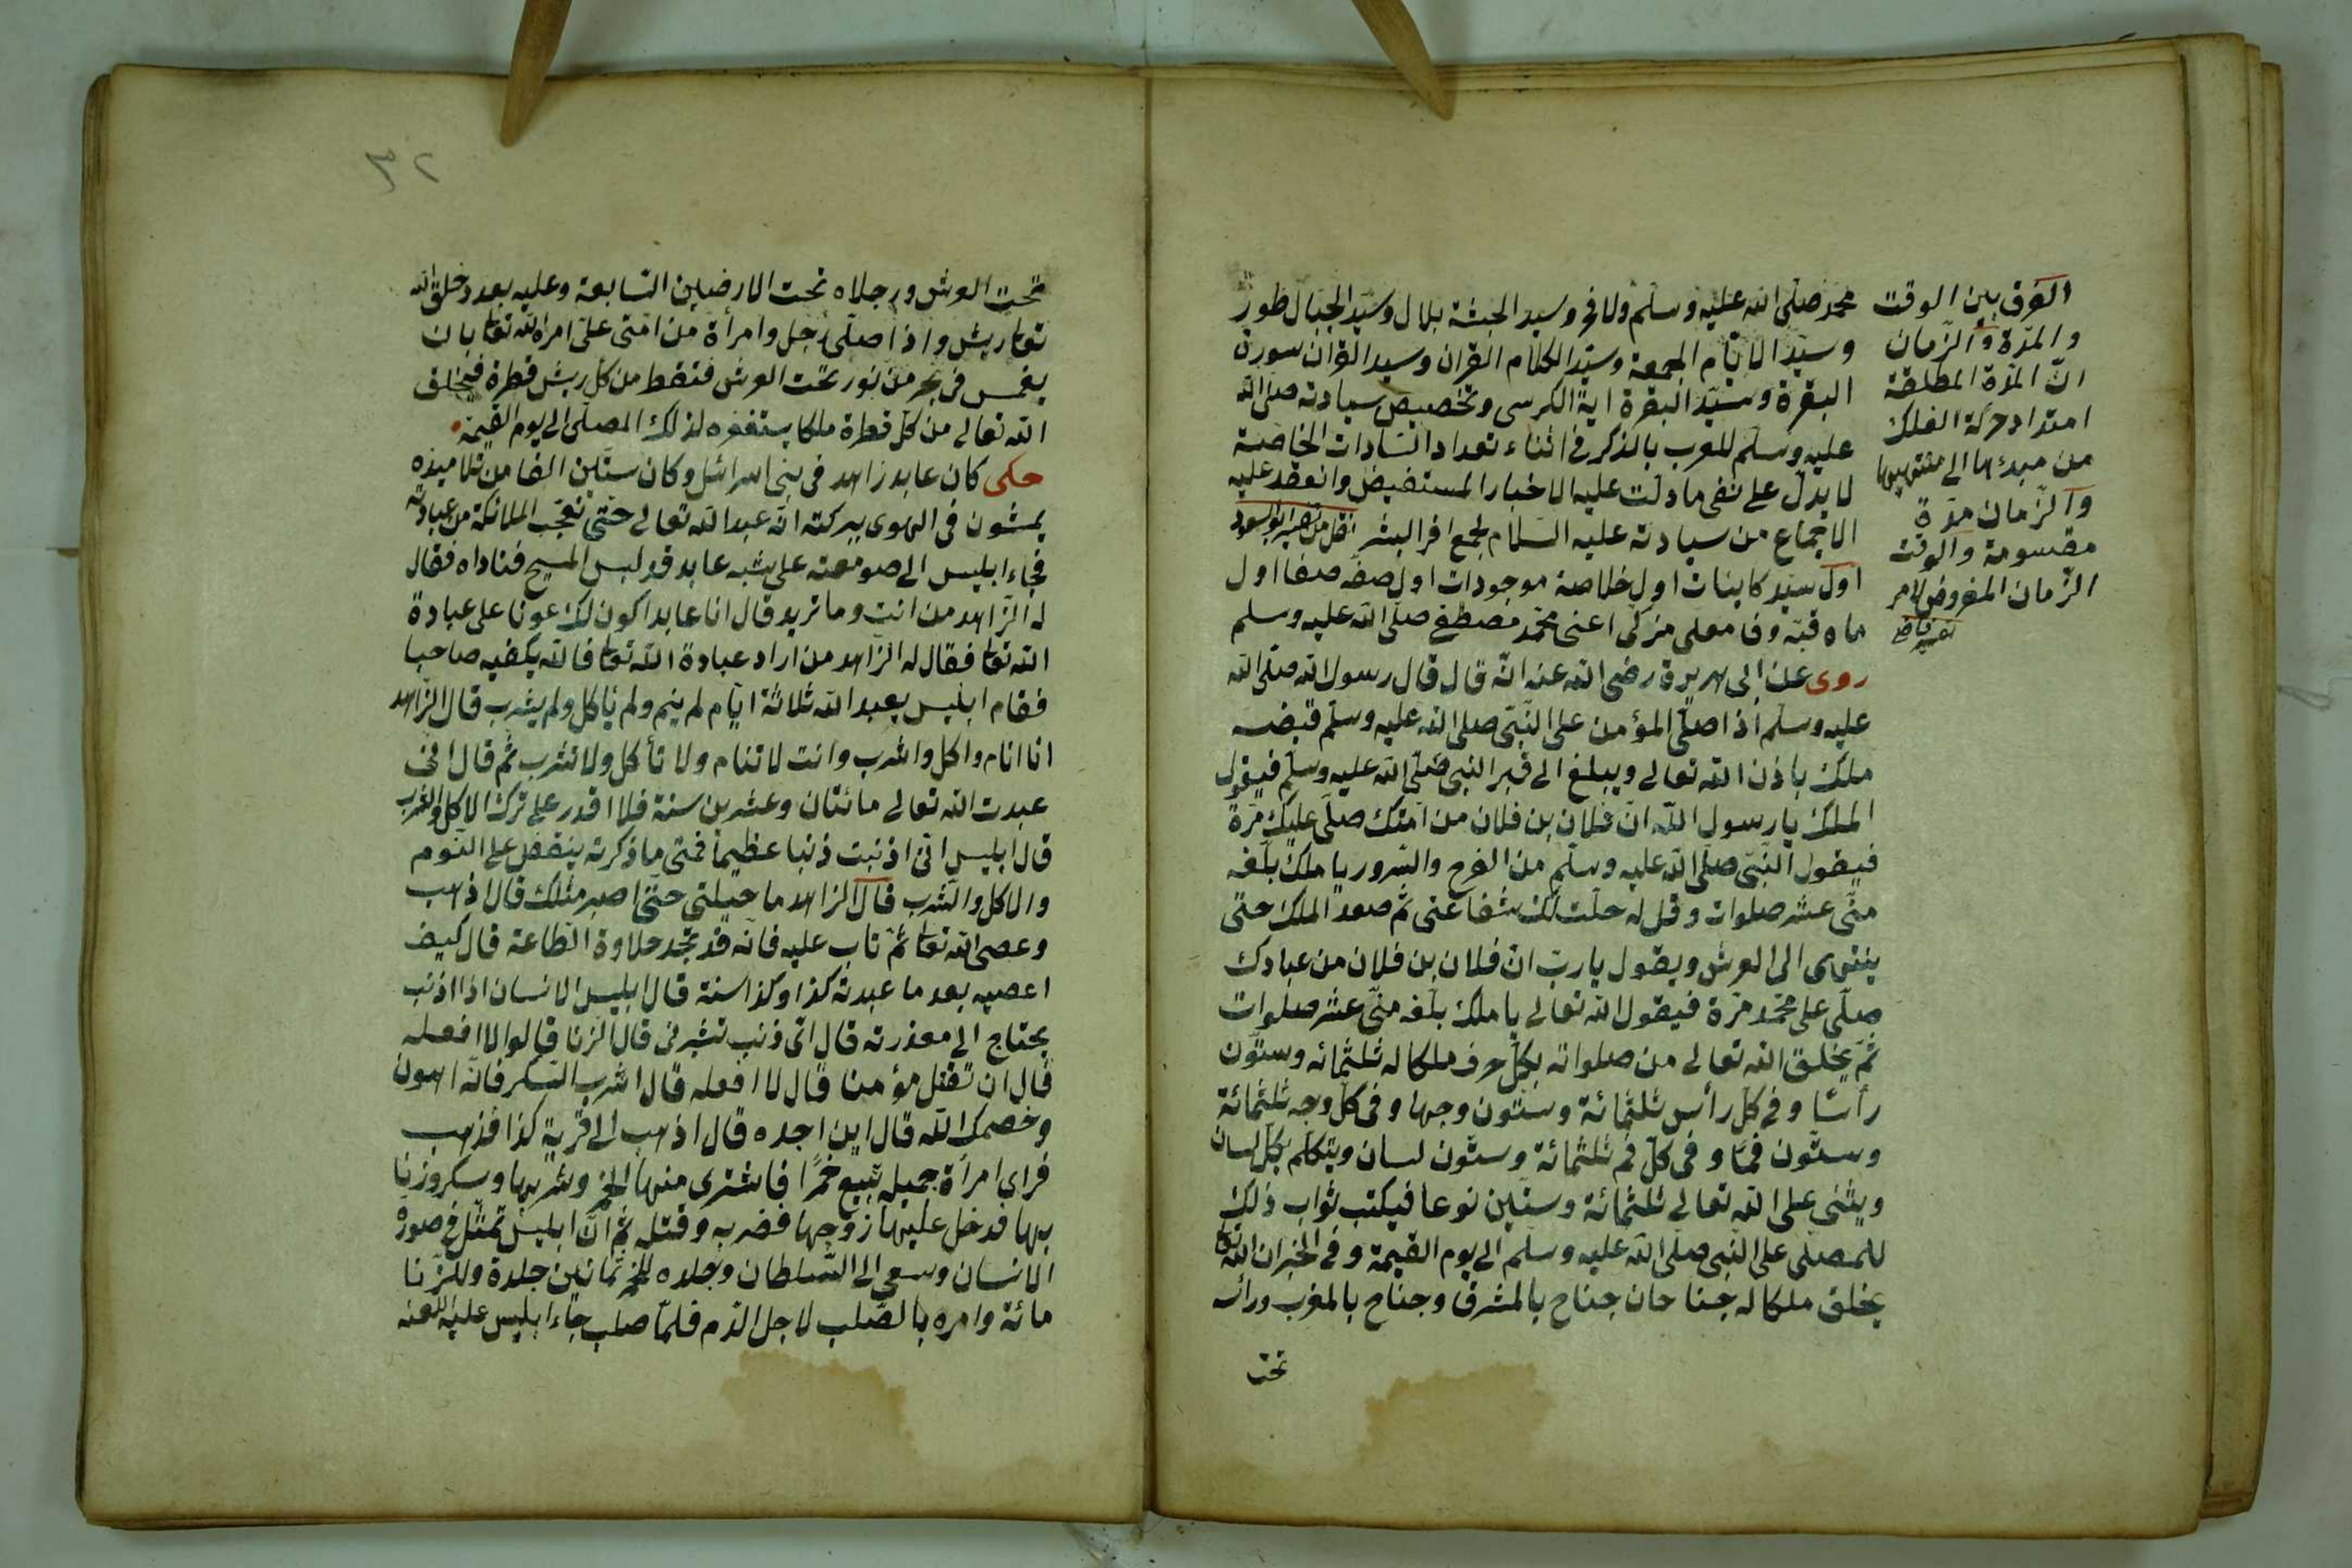 محمد صلّى الله عليه وسلّم ولا فخر وسيد الحبشة بلال وسيّد الجبال طور
وسيّد الايّام الجمعة وسيّد الكلام القران وسيد القران سورة
البقرة وسيّد البقرة اية الكرسى وتخصيص سيادته صلى الله
عليه وسلّم للعرب بالذكر فى اثناء تعداد السّادات الخاصّة
لا يدلّ على نفى ما دلّت عليه الاخبار المستفيض وانعقد عليه
الاجماع من سيادته عليه السّلام لجميع افراد البشر نقل من تفسير ابو السعود
اول سيّد كاينات اول خلاصۀ موجودات اول صفّه صفا اول
ماه قبّه وفا معلى مزكّى اعنى محمّد مصطفى صلّى الله عليه وسلم
روى عن ابى هريرة رضى الله عنه انّه قال قال رسول الله صلّى الله
عليه وسلّم اذا صلّى المؤمن على النّبىّ صلى الله عليه وسلّم قبضه
ملك باذن الله تعالى ويبلغ الى قبر النبى صلّى الله عليه وسلّم فيقول
الملك يا رسول الله انّ فلان بن فلان من امّتك صلّى عليك مرّة
فيقول النّبىّ صلّى الله عليه وسلّم من الفرح والسّرور يا ملك بلّغه
منّى عشر صلوات وقل له حلّت لك شفاعتى ثم صعد الملك حتّى
ينتهى الى العرش ويقول يا ربّ انّ فلان بن فلان من عبادك
صلّى على محمّد مرّة فيقول الله تعالى يا ملك بلّغه منّى عشر صلوات
ثمّ يخلق الله تعالى من صلواته بكلّ حرف ملكا له ثلثمائه وستّون
رأسًا وفى كلّ رأس ثلثمائة وستّون وجها وفى كلّ وجه ثلثمائة
وستّون فمًا وفى كلّ فم ثلثمائة وستّون لسان ويتكلّم بكلّ لسان
ويثنى على الله تعالى ثلثمائة وستّين نوعا فيكتب ثواب ذلك
للمصلّى على النّبى صلّى الله عليه وسلّم الى يوم القيمة وفى الخبر ان الله تعا
يخلق ملكا له جناحان جناح بالمشرق وجناح بالمغرب ورأسه
تحت
الفرق بين الوقت
والمدّة والزّمان
انّ المدّة المطلقة
امتداد حركة الفلك
من مبدئها الى منتهيها
والزّمان مدّة
مقسومة والوقت
الزّمان المفروض لامر
تفسير قاضى
٣٢
تحت العرش ورجلاه تحت الارضين السّابعة وعليه بعدد خلق الله
تعا ريش واذا صلّى رجل وامرأة من امّتى علىّ امراه الله تعا بان
يغمس فى بحر من نور تحت العرش فتقط من كل ريش قطرة فيخلق
الله تعالى من كلّ قطرة ملكا يستغفره لذلك المصلّى الى يوم القيمة
حكى كان عابد زاهد فى بنى اسرائيل وكان ستّين الفا من تلاميذه
يمشون فى الهوى ببركته انّه عبد الله تعالى حتّى تعجّب الملائكة من عبادته
فجاء ابليس الى صومعته على شبه عابد قد لبس المسيح فناداه فقال
له الزّاهد من انت وما تريد قال انا عابد اكون لك عونا على عبادة
الله تعا فقال له الزّاهد من اراد عبادة الله تعا فالله يكفيه صاحبا
فقام ابليس يعبد الله ثلاثة ايّام لم ينم ولم يأكل ولم يشرب قال الزّاهد
انا انام واكل واشرب وانت لا تنام ولا تأكل ولا تشرب ثم قال انى
عبدت الله تعالى مائتان وعشرين سنة فلا اقدر على ترك الاكل والشرب
قال ابليس انّى اذنبت ذنبا عظيما فمتى ما ذكرته ينقض على النّوم
والاكل والشرب قال الزاهد ما حيلتى حتّى اصير مثلك قال اذهب
وعصى الله تعا ثمّ تاب عليه فانّه قد تجد حلاوة الطّاعة قال كيف
اعصيه بعد ما عبدته كذا وكذا سنة قال ابليس الانسان اذا اذنب
يحتاج الى معذرته قال اىّ ذنب تشيرنى قال الزّنا قالوا لا افعله
قال ان تقتل مؤمنا قال لا افعله قال اشرب السّكر فانّه اهون
وخصمك الله قال اين اجده قال اذهب الى قرية كذا فذهب
فراى امرأة جميله تبيع خمرًا فاشترى منها الخمر وشربها وسكر وزنا
بها فدخل عليها زوجها فضربه وقتله ثم انّ ابليس تمثّل فى صورة
الانسان وسعى الى السّلطان وجلده للخمر ثمانين جلدة وللزّنا
مائة وامره بالصّلب لاجل الدّم فلمّا صلب جاء ابليس عليه اللعنه